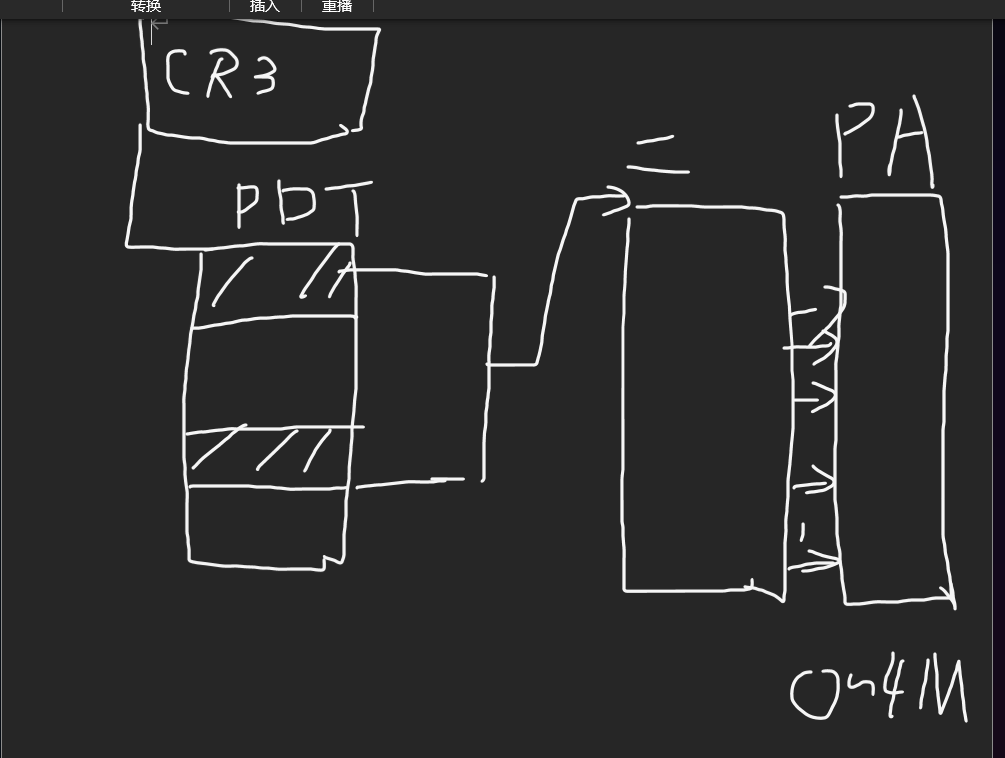 转换 插入 重播
CR3
PDT
二
PA
0~4M